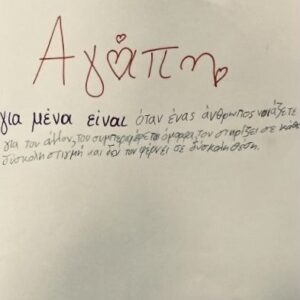 Αγάπη
για μένα είναι όταν ένας άνθρωπος νοιάζετε
για τον άλλον, του συμπεριφέρετε όμορφα, τον στιρίζει σε κάθε
δύσκολη στιγμή και δεν τον φέρνει σε δύσκολη θεση.